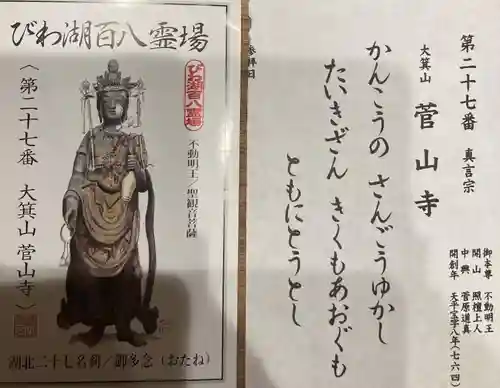 びわ湖百八霊場
びわ湖百八霊場
不動明王／聖観音菩薩
〈第二十七番　大箕山　菅山寺〉
湖北二十七名刹／御多念（おたね）
第二十七番　真言宗
大箕山　菅山寺
かんこうの　さんごうゆかし
たいきざん　きくもあおぐも
ともにとうとし
御本尊　不動明王
開山　照檀上人
中興　菅原道真
開創年　天平宝字八年（七六四）
参拝日